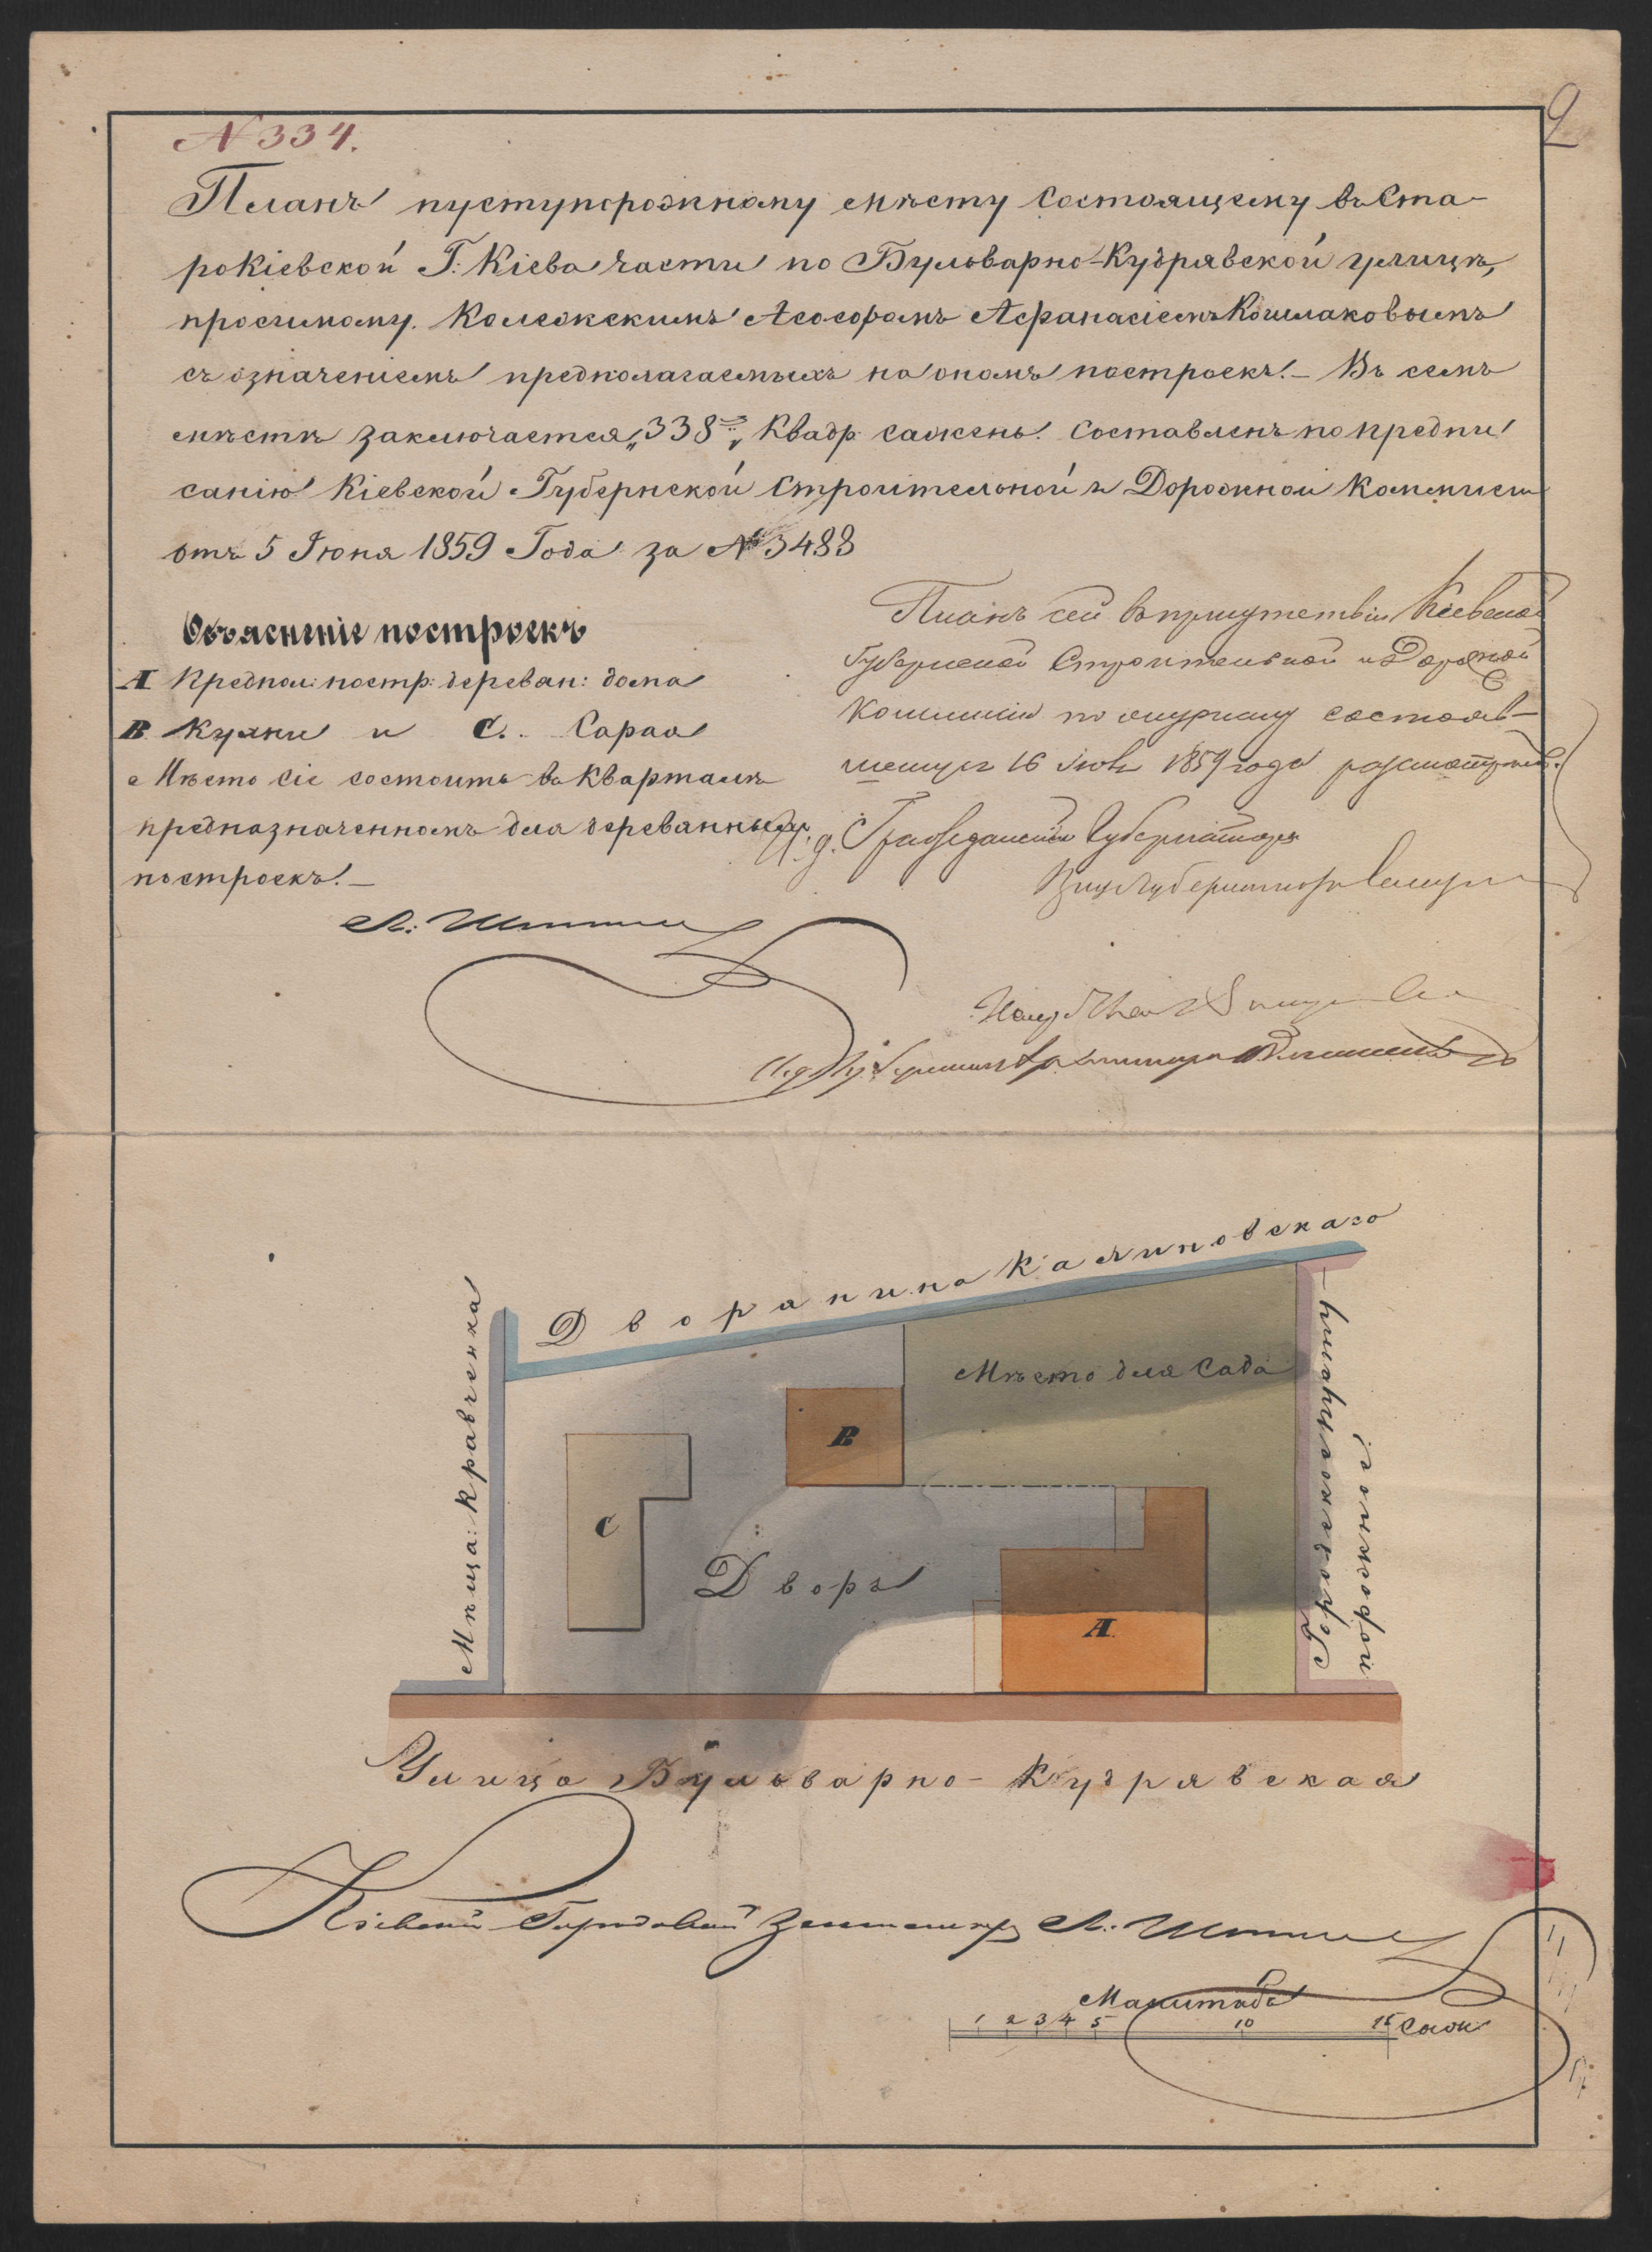 9
N 334.
Планъ пуступорожному мѣсту состоящему въ Ста-
рокіевской Г: Кіева части по Бульварно-Кудрявской улицѣ,
просимому. Колежскимъ Асосоромъ Афанасіемъ Кошлаковымъ
съ означеніемъ предполагаемыхъ на ономъ построекъ.- Въ семъ
мѣстѣ заключается „338„ Квадр: сажень. Составленъ по предпи
санію Кіевской Губернской Строительной и Дорожной Комисіи
отъ 5 Іюня 1859 Года за № 3488
Объясненіе построекъ
А Предпол: постр: дереван: дома
В Кухни и С. Сарая
Мѣсто сіе состоитъ въ Кварталѣ
предназначенномъ для дереванныхъ
построекъ.-
Планъ сей въ присутствіи Кіевской
Губернской Строительной и Дорожной
Комиссіи по журналу состояв-
шемуся 16 Іюля 1859 года разсмотрѣнъ.
И. д. Гражданскаго Губернатора
Вице Губернаторъ
Дворянина Калиновскаго
Мѣща: Кравченка
Мѣсто для Сада
В
С
Дворъ
А.
Городское пустопорожнее
Улица Бульварно-Кудрявская
Кіевскій Городовой Землемѣръ
Масштабъ
1 2 3 4 5 10 15 Саж